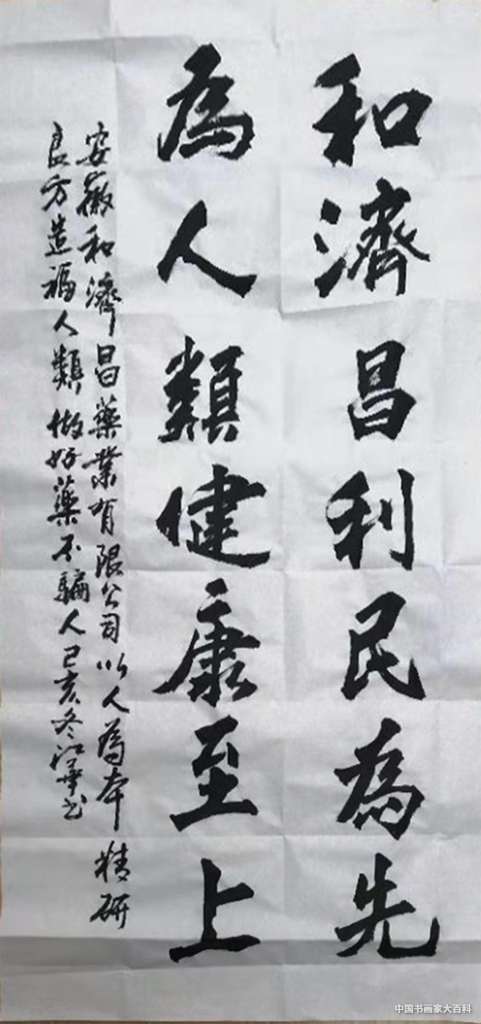 和濟昌利民為先
為人類健康至上
安徽和濟昌藥業有限公司以人為本精研
良方造福人類做好藥不騙人己亥冬江華书
中国书画家大百科